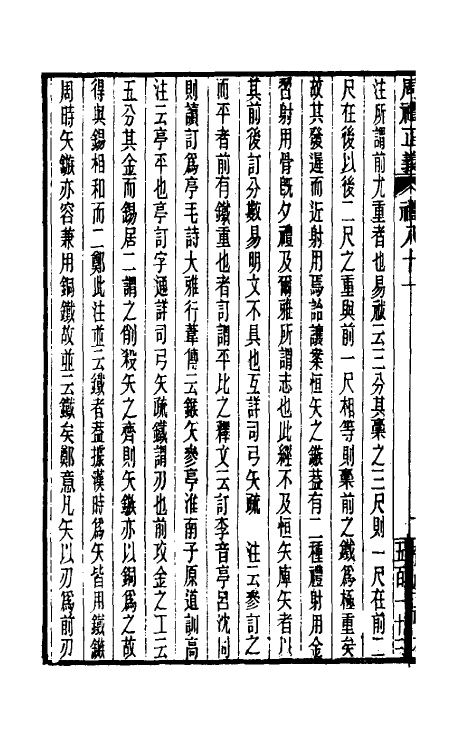 周禮正義 卷八十一
注所謂前尤重者也易祓云三分其稾之三尺則一尺在前二
尺在後以後二尺之重與前一尺相等則稾前之鐵爲極重矣
故其發遲而近射用焉詒讓案恒矢之鏃葢有二種禮射用金
習射用骨旣夕禮及爾雅所謂志也此經不及恒矢庳矢者以
其前後訂分數易明文不具也互詳司弓矢疏 注云參訂之
而平者前有鐵重也者訂謂平比之釋文云訂李音亭呂沈同
則讀訂爲亭毛詩大雅行葦傳云鍭矢參亭淮南子原道訓高
注云亭平也亭訂字通詳司弓矢疏鐵謂刃也前攻金之工云
五分其金而錫居二謂之削殺矢之齊則矢鏃亦以銅爲之故
得與錫相和而二鄭此注並云鐵者葢據漢時爲矢皆用鐵鏃
周時矢鏃亦容兼用銅鐵故並云鐵矣鄭意凡矢以刃爲前刃